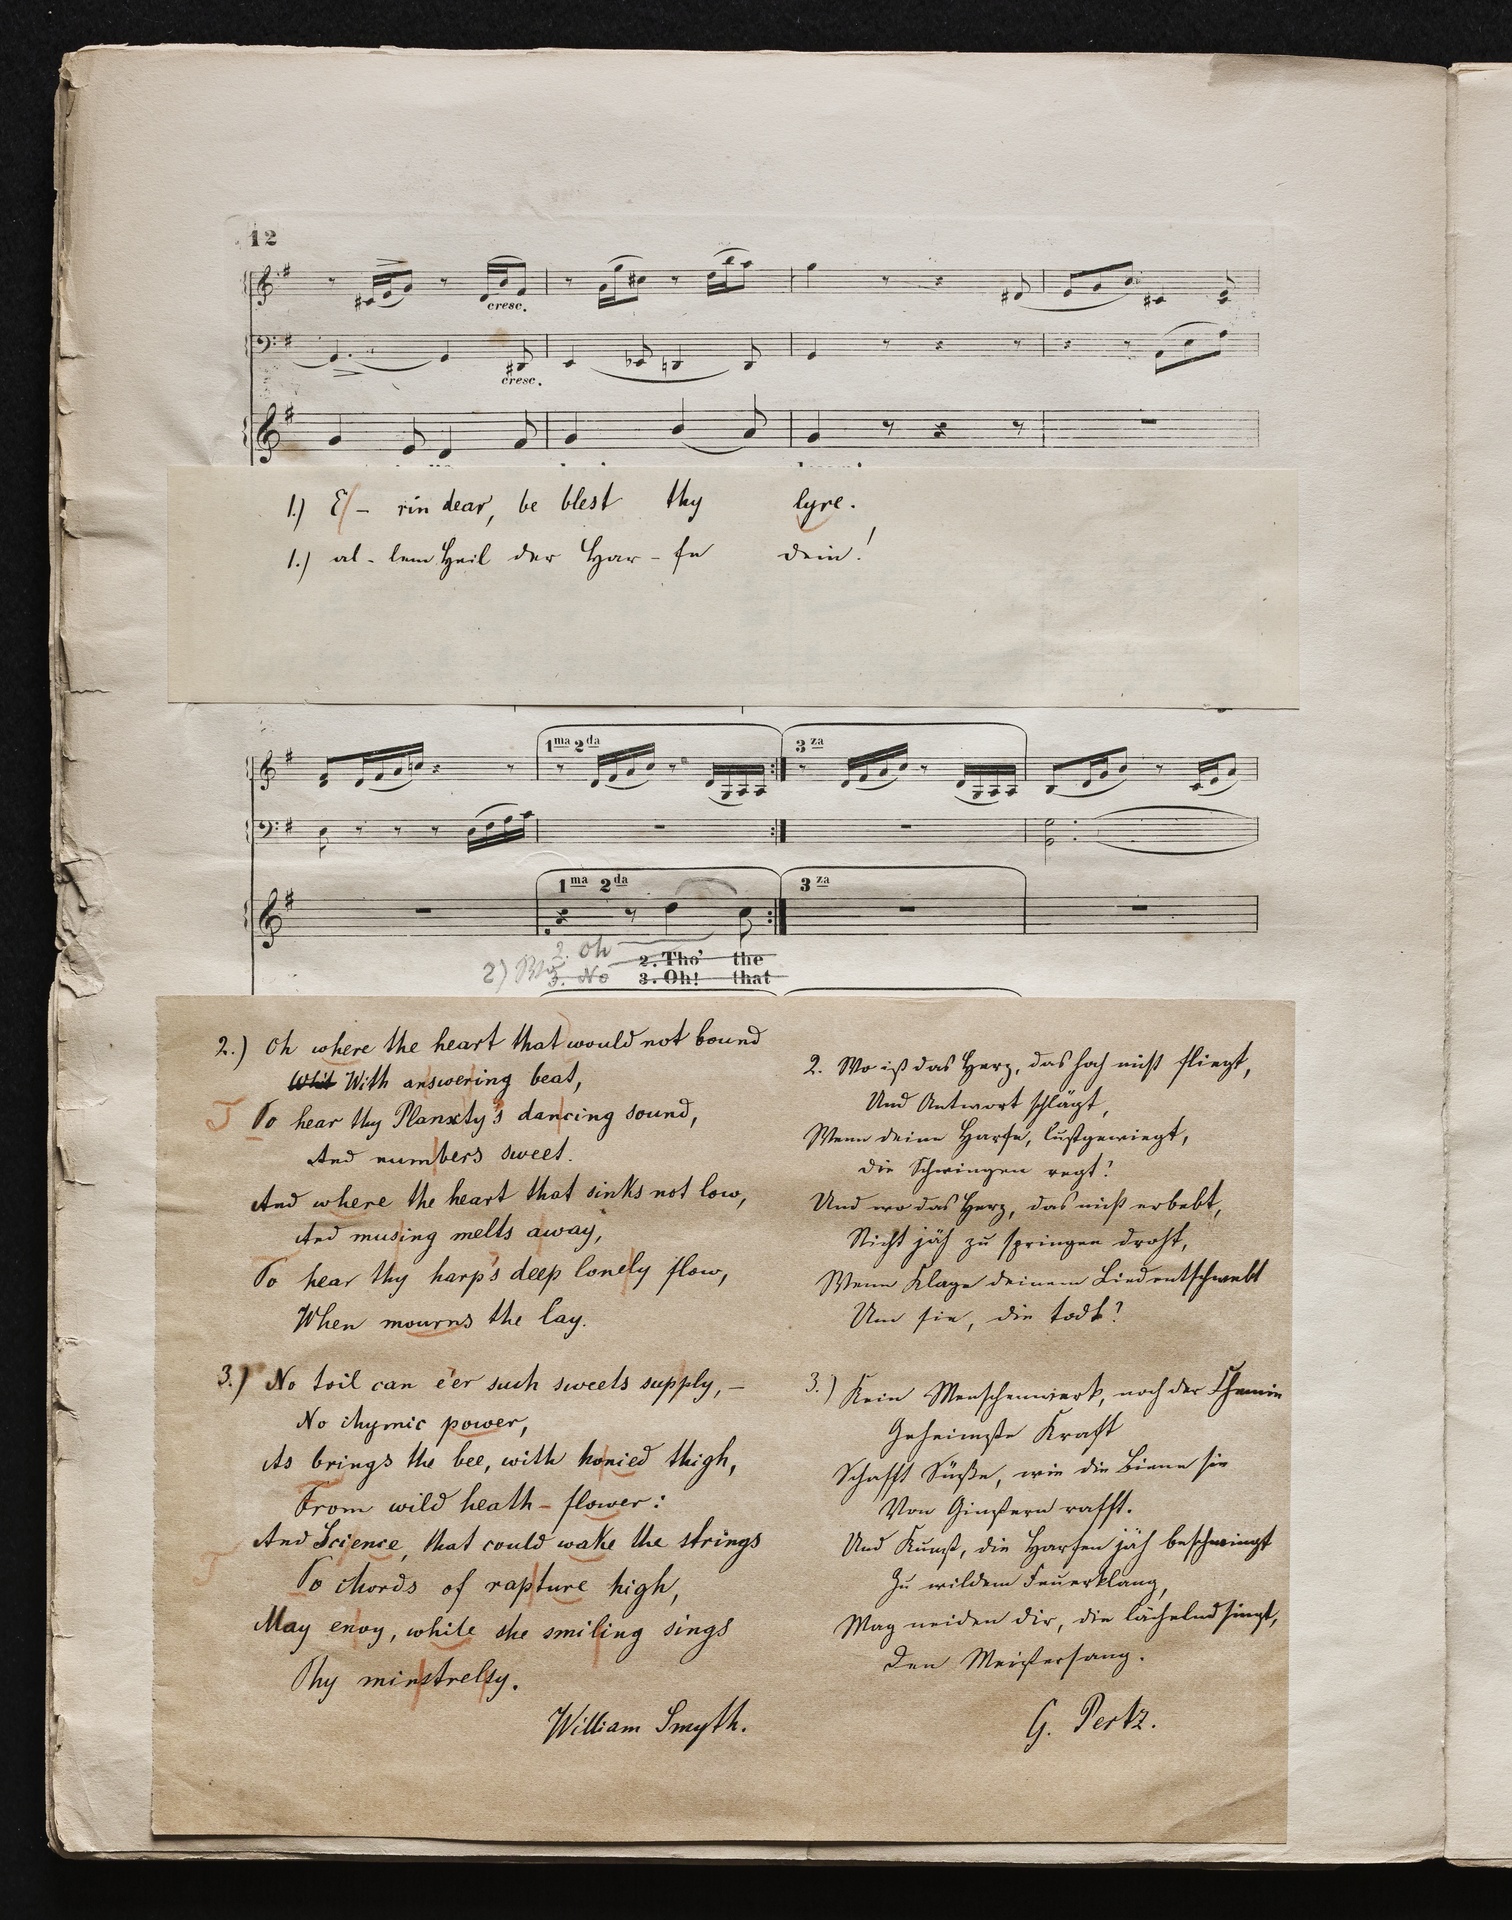 12
cresc.
cresc.
1.) E- rin dear, be blest thy lyre.
1.) al-lem Heil der Har-fe dein!
1ma 2da 3za
1ma 2da 3za
2. Oh 2. Tho' the
2) Wo 3. No 3. Oh! that
2.) Oh where the heart that would not bound
With answering beat,
To hear thy Planxty's dancing sound,
And numbers sweet.
And where the heart that sinks not low,
And musing melts away,
To hear thy harp's deep lonely flow,
When mourns the lay.
3.) No toil can e'er such sweets supply, –
No chymic power,
As brings the bee, with honied thigh,
From wild heath-flower:
And Science, that could wake the strings
To chords of rapture high,
May envy, while she smiling sings
Thy minstrelsy.
William Smyth.
2. Wo ist das Herz, das hoch nicht fliegt,
Und Antwort schlägt,
Wenn deine Harfe, lustgewiegt,
die Schwingen regt?
Und wo das Herz, das nicht erbebt,
Nicht jäh zu springen droht,
Wenn Klage deinem Lied entschwebt
Um sie, die todt?
3.) Kein Menschenwerk, noch der Chemie
Geheimste Kraft
Schafft Süße, wie die Biene sie
Von Ginstern rafft.
Und Kunst, die Harfen jäh beschwingt
Zu wildem Feuerklang,
Mag neiden dir, die lächelnd singt,
den Meistersang.
G. Pertz.